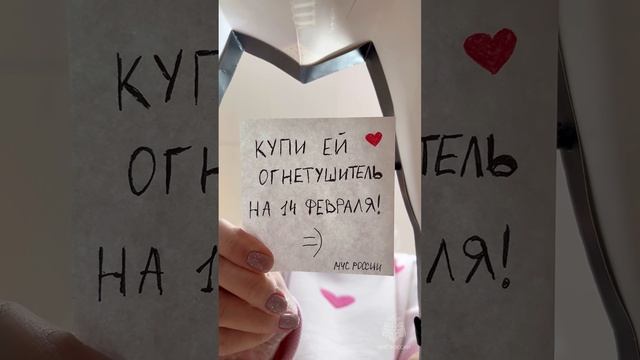 КУПИ ЕЙ
ОГНЕТУШИТЕЛЬ
НА 14 ФЕВРАЛЯ!
=)
МЧС РОССИИ